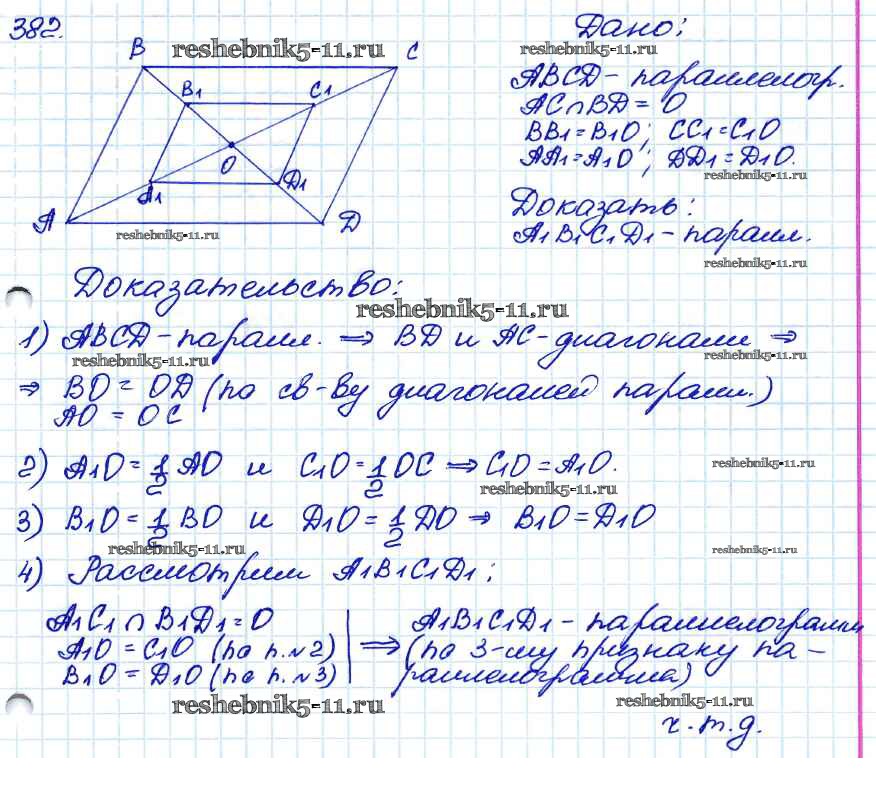 382.
B
C
B1
C1
O
A1
D1
A
D
reshebnik5-11.ru
reshebnik5-11.ru
Дано:
reshebnik5-11.ru
ABCD - параллелогр.
AC∩BD = O
BB1 = B1O; CC1 = C1O
AA1 = A1O; DD1 = D1O.
reshebnik5-11.ru
Доказать:
A1B1C1D1 - паралл.
reshebnik5-11.ru
Доказательство:
reshebnik5-11.ru
1) ABCD - паралл. ⇒ BD и AC - диагонали ⇒
reshebnik5-11.ru
reshebnik5-11.ru
⇒ BO = OD (по св-ву диагоналей паралл.)
AO = OC
2) A1O = 1/2 AO и C1O = 1/2 OC ⇒ C1O = A1O.
reshebnik5-11.ru
reshebnik5-11.ru
3) B1O = 1/2 BO и D1O = 1/2 DO ⇒ B1O = D1O
reshebnik5-11.ru
reshebnik5-11.ru
4) Рассмотрим A1B1C1D1:
A1C1 ∩ B1D1 = O | A1B1C1D1 - параллелограмм
A1O = C1O (по п.№2) | ⇒ (по 3-му признаку па-
B1O = D1O (по п.№3) | раллелограмма)
reshebnik5-11.ru
reshebnik5-11.ru
ч.т.д.